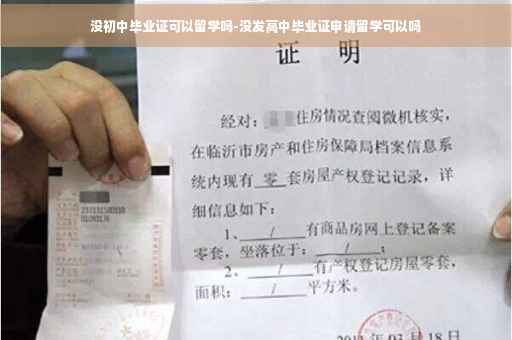 没初中毕业证可以留学吗-没发高中毕业证申请留学可以吗
证 明
经对：住房情况查阅微机核实，
在临沂市房产和住房保障局档案信息系
统内现有 零 套房屋产权登记记录，详
细信息如下：
1、 / 有商品房网上登记备案
零套，坐落位于： / ；
2、 / 有产权登记房屋零套，
面积： / 平方米。
03月18日